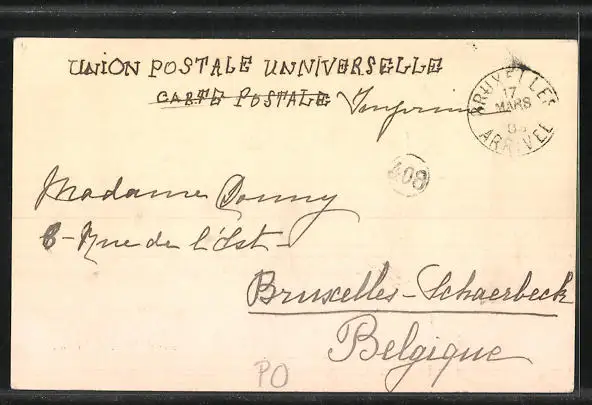 UNION POSTALE UNNIVERSELLE
CARTE POSTALE Imprimé
BRUXELLES
17
MARS
ARRIVEE
408
Madame Donny
8 - Rue de l'Est -
Bruxelles - Schaerbeek
Belgique
PO